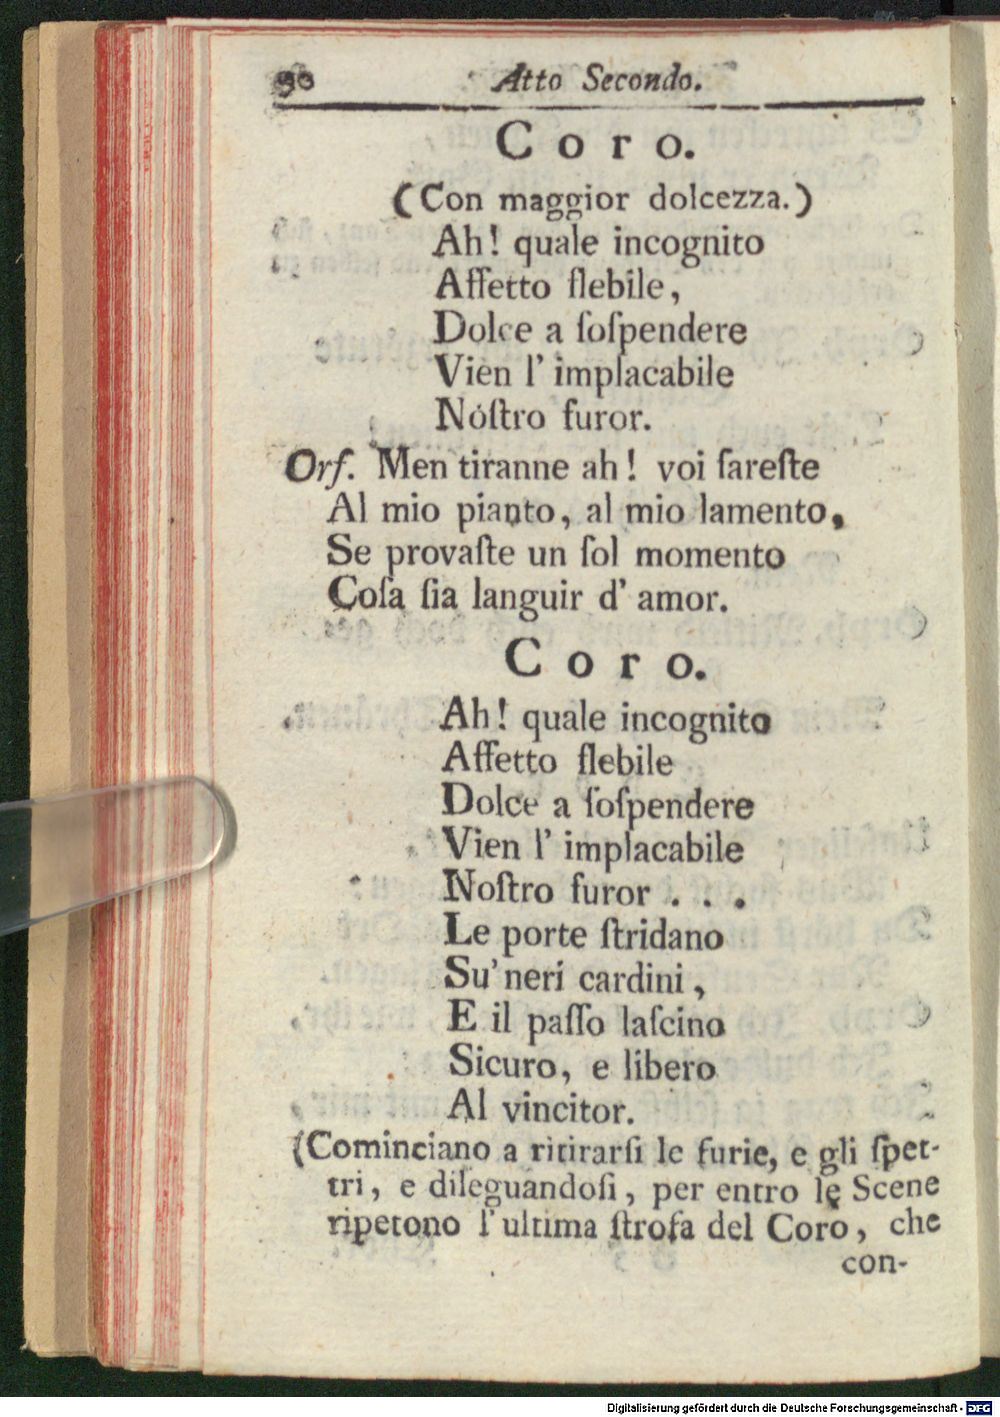 30 Atto Secondo.
Coro.
(Con maggior dolcezza.)
Ah! quale incognito
Affetto flebile,
Dolce a ſoſpendere
Vien l' implacabile
Nóſtro furor.
Orf. Men tiranne ah! voi ſareſte
Al mio pianto, al mio lamento,
Se provaſte un ſol momento
Coſa ſia languir d' amor.
Coro.
Ah! quale incognito
Affetto flebile
Dolce a ſoſpendere
Vien l' implacabile
Noſtro furor . . .
Le porte ſtridano
Su' neri cardini,
E il paſſo laſcino
Sicuro, e libero
Al vincitor.
(Cominciano a ritirarſi le furie, e gli ſpet-
tri, e dileguandoſi, per entro le Scene
ripetono l' ultima ſtrofa del Coro, che
con-
Digitalisierung gefördert durch die Deutsche Forschungsgemeinschaft - DFG